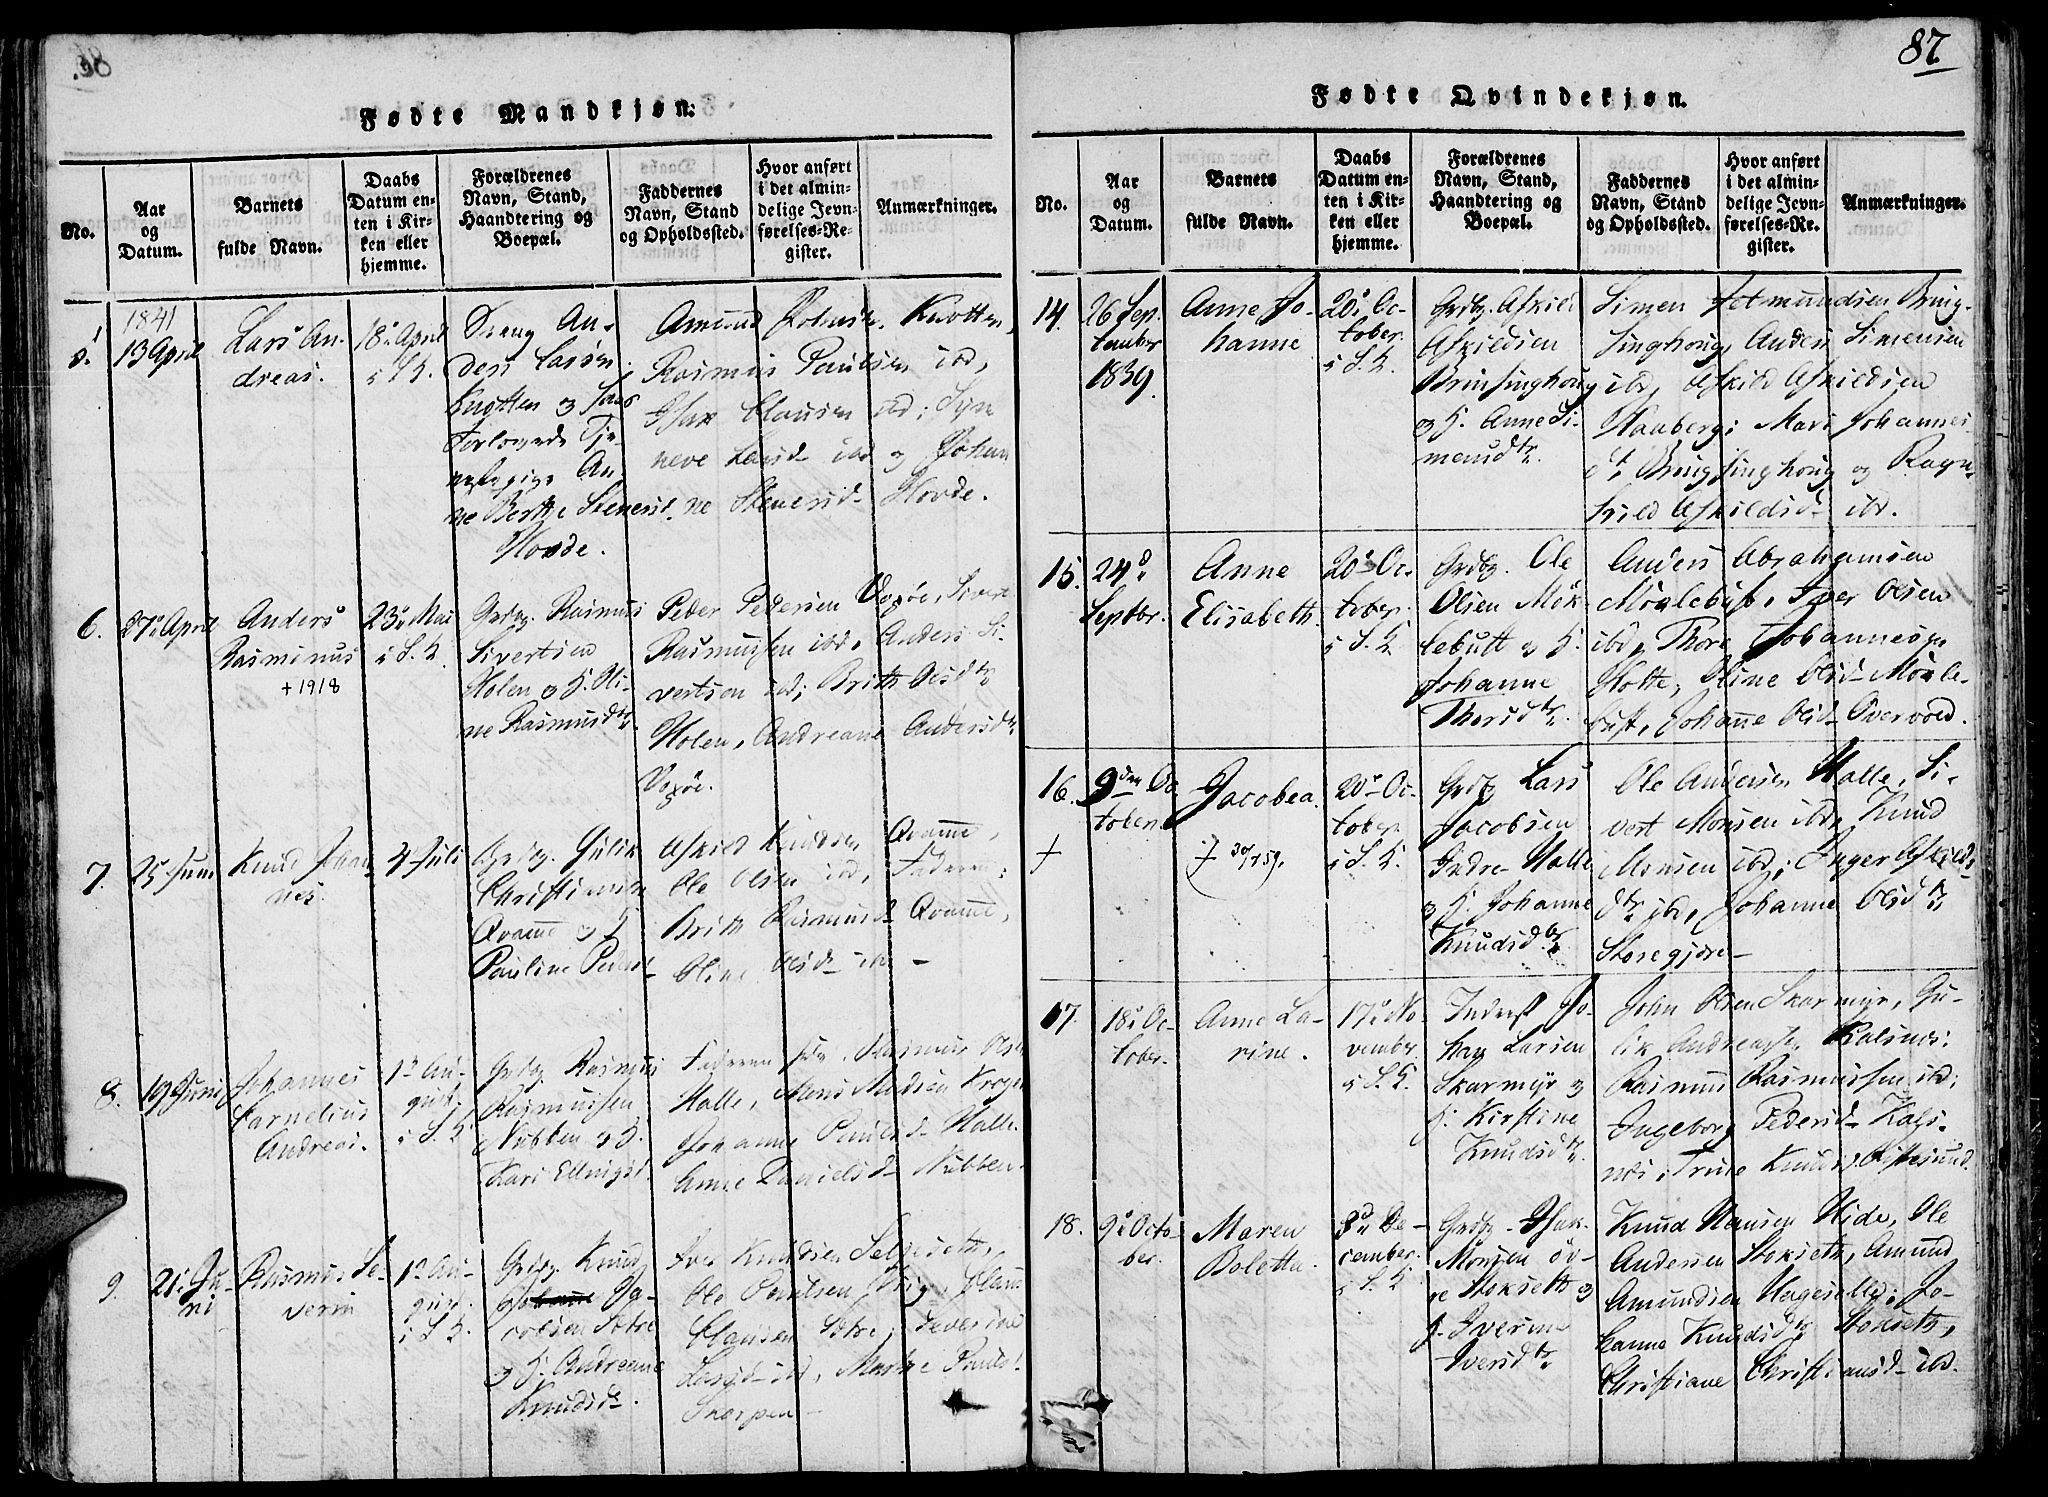 87
Fødte Mandkjøn.
No.
Aar
og
Datum.
Barnets
fulde Navn.
Daabs
Datum en-
ten i Kir-
ken eller
hjemme.
Forældrenes
Navn, Stand,
Haandtering og
Boepæl.
Faddernes
Navn, Stand
og Opholdssted.
Hvor anført
i det almin-
delige Jevn-
førelses-Re-
gister.
Anmærkninger.
5.
1841
13 April
Lars An-
dreas.
18 April
i S. K.
Dreng An-
ders Larsen
Knotten og
Tje-
An-
ne Berthe Stenersd.
Hovde.
Amund Johns. Knotten,
Rasmus Paulsen ibd,
Isak Clausen ibd; Syn
neve Larsd ibd og Johan
ne Stenersd Hovde.
6.
27 April
Anders
Rasminus
+ 1918
23 Mai
i S. K.
Grdbg. Rasmus
Sivertsen
Holen og H. Oli-
ne Rasmusdtr.
Peder Pedersen Voxøe, Sivert
Rasmussen ibd, Anders Si-
vertsen ibd; Brith Olsdtr
Holen, Andreane Andersdtr
Voxøe.
7.
25 Juni
Knud Johan
nes.
4 Juli
Grdbg. Gulik
Christiansen
Qvamme og H
Pauline Pedersd
Askild Knudsen Qvamme,
Ole Olsen ibd, Faderen;
Brith Rasmusd Qvamme,
Oline Olsd ibd –
8.
19 Juni
Johannes
Cornelius
Andreas.
1 Au-
gust
i S. K
Grdbg. Rasmus
Rasmussen
Nubben og H.
Kari Ellingsd.
Faderen selv, Rasmus Olsen
Halle, Mons Madsen
Johanne Paulsd Halle
Anne Danielsd Nubben.
9.
21 Ju-
ni
Rasmus Se-
verin
1 Au-
gust.
i S. K
Grdbg. Knud
Ja-
cobsen Sætre
og H. Andreane
Knudsd.
Iver Knudsen Selgeseth,
Ole Paulsen
Clausen Sætre;
Larsd ibd, Marthe Paulsd
Skorpen –
Fødte Qvindekjøn.
No.
Aar
og
Datum.
Barnets
fulde Navn.
Daabs
Datum en-
ten i Kir-
ken eller
hjemme.
Forældrenes
Navn, Stand,
Haandtering og
Boepæl.
Faddernes
Navn, Stand
og Opholdssted.
Hvor anført
i det almin-
delige Jevn-
førelses-Re-
gister.
Anmærkninger.
14.
26 Sep.
tember
1839.
Anne Jo-
hanne
20 Oc-
tober
i S. K.
Grdbg. Askild
Askildsen
Bringsinghoug
og H. Anne Si-
mensdtr.
Simen Jetmundsen Bring-
singhoug, Anders Simensen
ibd, Askild Askildsen
Haaberg; Mari Johannes
dtr Bringsinghoug og Ragn-
hild Askildsd ibd.
15.
24
Septbr.
Anne
Elisabeth.
20 Oc-
tober
i S. K.
Grdbg. Ole
Olsen Møk-
lebust og H.
Johanne
Thorsdtr.
Anders Abrahamsen
Møklebust, Iver Olsen
ibd, Thore Johannesen
Holte, Oline Olsd Møkle-
bust, Johanne Olsd Overvold.
16.
+
9den Oc
tober
Jacobea.
(+ 30/7 59.
20 Oc-
tober
i S. K.
Grdbg Lars
Jacobsen
Indre Halle
og H. Johanne
Knudsdtr.
Ole Andersen Halle, Si-
vert Monsen ibd, Knud
Monsen ibd; Inger Askilds
dtr ibd, Johanne Olsdtr
Storegjøre –
17.
18 Oc-
tober
Anne La-
rine.
17 No-
vember
i S. K.
Inderst Jo-
han Larsen
Skarmyr og
H. Kirstine
Knudsdtr.
John Olsen Skarmyr, Gu-
lik Andreas. Kalsnes;
Rasmus Rasmussen ibd;
Ingeborg Pedersd Kals-
nes; Trine Knudsd.
18.
9 Octo-
ber.
Maren
Boletta.
8 De-
cember.
i S. K.
Grdbg. Isak
Monsen Øv-
re Stokseth og
H. Iverine
Iversdtr.
Knud Hansen Hide, Ole
Andersen Stokseth, Amund
Amundsen; Jo-
hanne Knudsdtr Stokseth,
Christiane Christiansd ibd.